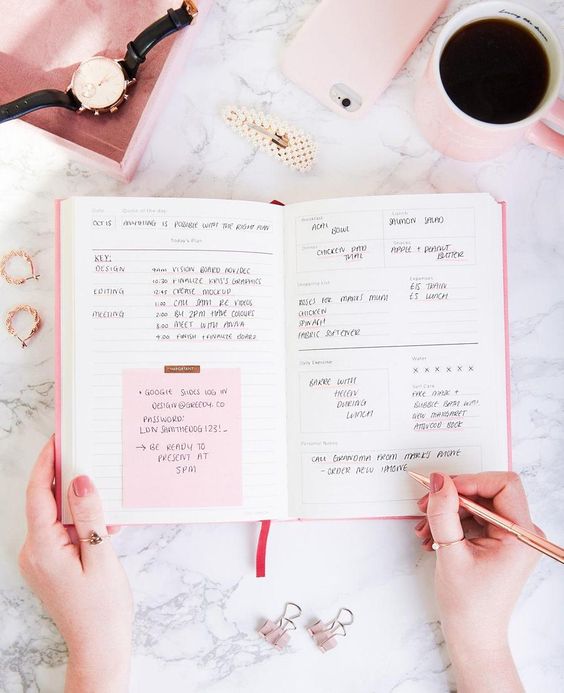 Date
Quote of the day
OCT 15
ANYTHING IS POSSIBLE WITH THE RIGHT PLAN
Today's Plan
KEY:
DESIGN
9AM VISION BOARD NOV/DEC
10:30 FINALIZE KRIS'S GRAPHICS
EDITING
12:45 CREATE MOCKUP
1:00 CALL SAM RE VIDEOS
MEETING
2:00 BY 2PM HAVE COLOURS
3:00 MEET WITH ANNA
4:00 FINISH + FINALIZE BOARD
IMPORTANT
• GOOGLE SLIDES LOG IN
DESIGN@GREEDY.CO
PASSWORD:
LDNSAMTHEDOG123!
→ BE READY TO
PRESENT AT
5PM
Breakfast
ACAI
BOWL
Lunch
SALMON SALAD
Dinner
CHICKEN PAD
THAI
Snacks
APPLE + PEANUT
BUTTER
Shopping List
ROSES FOR MARK'S MUM
CHICKEN
SPINACH
FABRIC SOFTENER
Expenses
£15 TRAIN
£5 LUNCH
Daily Exercise
BARRE WITH
HELEN
DURING
LUNCH
Water
× × × × × ×
Self Care
FACE MASK +
BUBBLE BATH WITH
NEW MARGARET
ATWOOD BOOK
Personal Notes
CALL GRANDMA FROM MARK'S PHONE
- ORDER NEW IPHONE